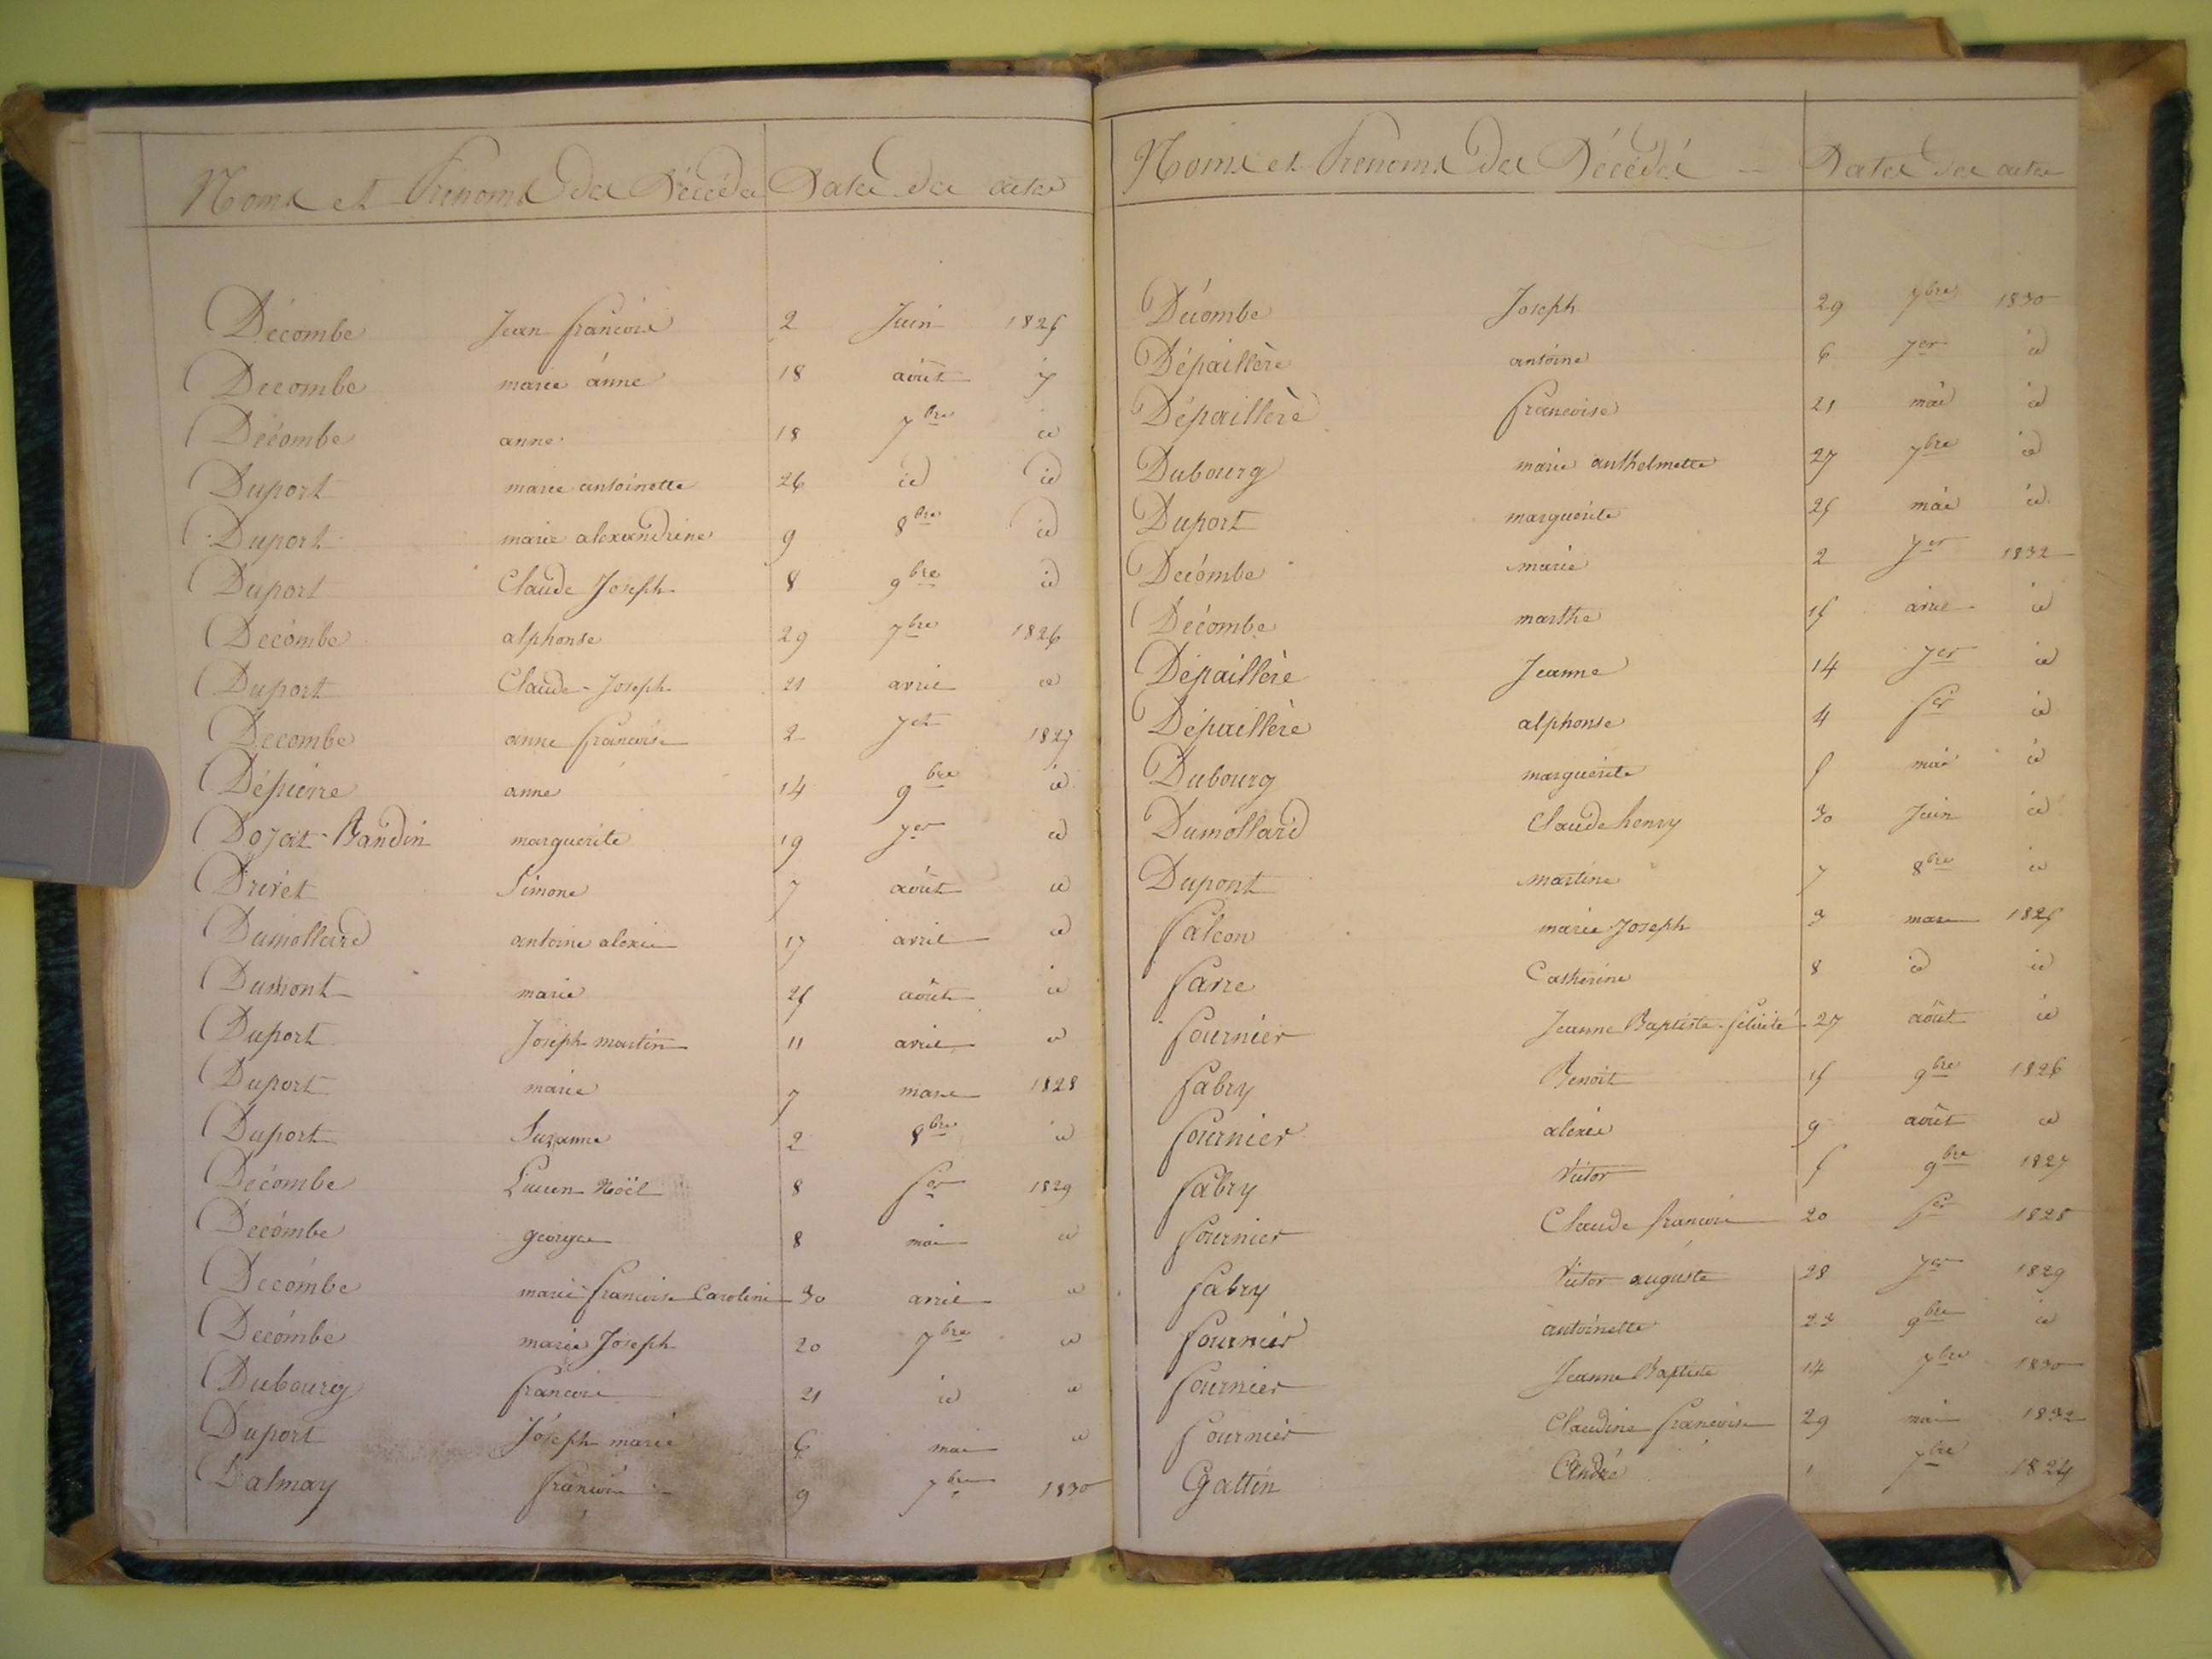 Noms et Prenoms des Décédés Dates des actes
Décombe Jean françois 2 Juin 1825
Decombe marie anne 18 août
Décombe anne 18 7bre id
Duport marie antoinette 26 id id
Duport marie alexandrine 9 8bre id
Duport Claude Joseph 8 9bre id
Decombe alphonse 29 7bre 1826
Duport Claude-Joseph 21 avril id
Decombe anne francoise 2 1827
Dépierre anne 14 9bre id
Dojat-Bandin marguerite 19 Jer id
Drivet Simone 7 août id
Dumollard antoine alexis 17 avril id
Dumont marie 25 août id
Duport Joseph martin 11 avril id
Duport marie 7 mars 1828
Duport Suzanne 2 8bre id
Decombe Lucien Noël 8 fer 1829
Decombe georges 8 mai id
Decombe marie francoise Caroline 30 avril id
Decombe marie Joseph 20 7bre id
Dubourg francois 21 id id
Duport Joseph marie 6 mai id
Dalmay francois 9 7bre 1830
Noms et Prenoms des Décédés Dates des actes
Décombe Joseph 29 7bre 1830
Dépaillère antoine 6 Jer id
Dépaillère francoise 21 mai id
Dubourg marie anthelmette 27 7bre id
Duport marguerite 25 mai id
Decombe marie 2 Jer 1832
Décombe marthe 15 avril id
Dépaillère Jeanne 14 Jer id
Dépaillère alphonse 4 fer id
Dubourg marguerite 5 mai id
Dumollard Claude henry 30 Juin id
Dupont martine 7 8bre id
falcon marie Joseph 3 mars 1825
farre Catherine 8 id id
fournier Jeanne Baptiste-félicité 27 août id
fabry Benoit 15 9bre 1826
fournier alexis 9 août id
fabry Victor 5 9bre 1827
fournier Claude francois 20 fer 1828
fabry Victor auguste 28 Jer 1829
fournier antoinette 23 9bre id
fournier Jeanne Baptiste 14 7bre 1830
fournier Claudine francoise 29 mai 1832
Gattin André 1 7bre 1824